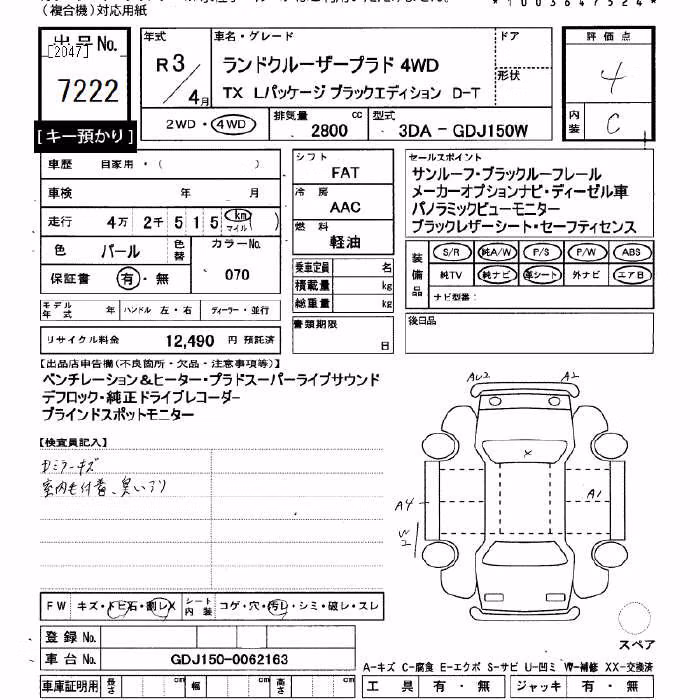 (複合機)対応用紙
*1003647524*
出品No.
[2047]
7222
【キー預かり】
年式
R3/4月
車名・グレード
ランドクルーザープラド 4WD
TX Lパッケージ ブラックエディション D-T
ドア
形状
評価点
4
内装
C
2WD・4WD
排気量
2800 cc
型式
3DA - GDJ150W
車歴 自家用・( )
車検 年 月
走行 4万 2千 515 km マイル ( )
色 パール
色替
カラーNo.
070
保証書 有・無
シフト
FAT
冷房
AAC
燃料
軽油
乗車定員 名
積載量 kg
総重量 kg
書類期限
日
セールスポイント
サンルーフ・ブラックルーフレール
メーカーオプションナビ・ディーゼル車
パノラミックビューモニター
ブラックレザーシート・セーフティセンス
装備品
S/R 純A/W P/S P/W ABS
純TV 純ナビ 革シート 外ナビ エアB
ナビ型番:
モデル年式 年 ハンドル 左・右 ディーラー・並行
リサイクル料金 12,490 円 預託済
後日品
【出品店申告欄(不良箇所・欠品・注意事項等)】
ベンチレーション&ヒーター・プラドスーパーライブサウンド
デフロック・純正ドライブレコーダー
ブラインドスポットモニター
【検査員記入】
Dミラーキズ
AU2
A2
X
A4
A1
W2
FW キズ・トビ石・割レX
シート内装 コゲ・穴・汚レ・シミ・破レ・スレ
登録No.
車台No. GDJ150-0062163
スペア
A-キズ C-腐食 E-エクボ S-サビ U-凹ミ W-補修 XX-交換済
車庫証明用 長さ cm 幅 cm 高さ cm
工具 有・無 ジャッキ 有・無